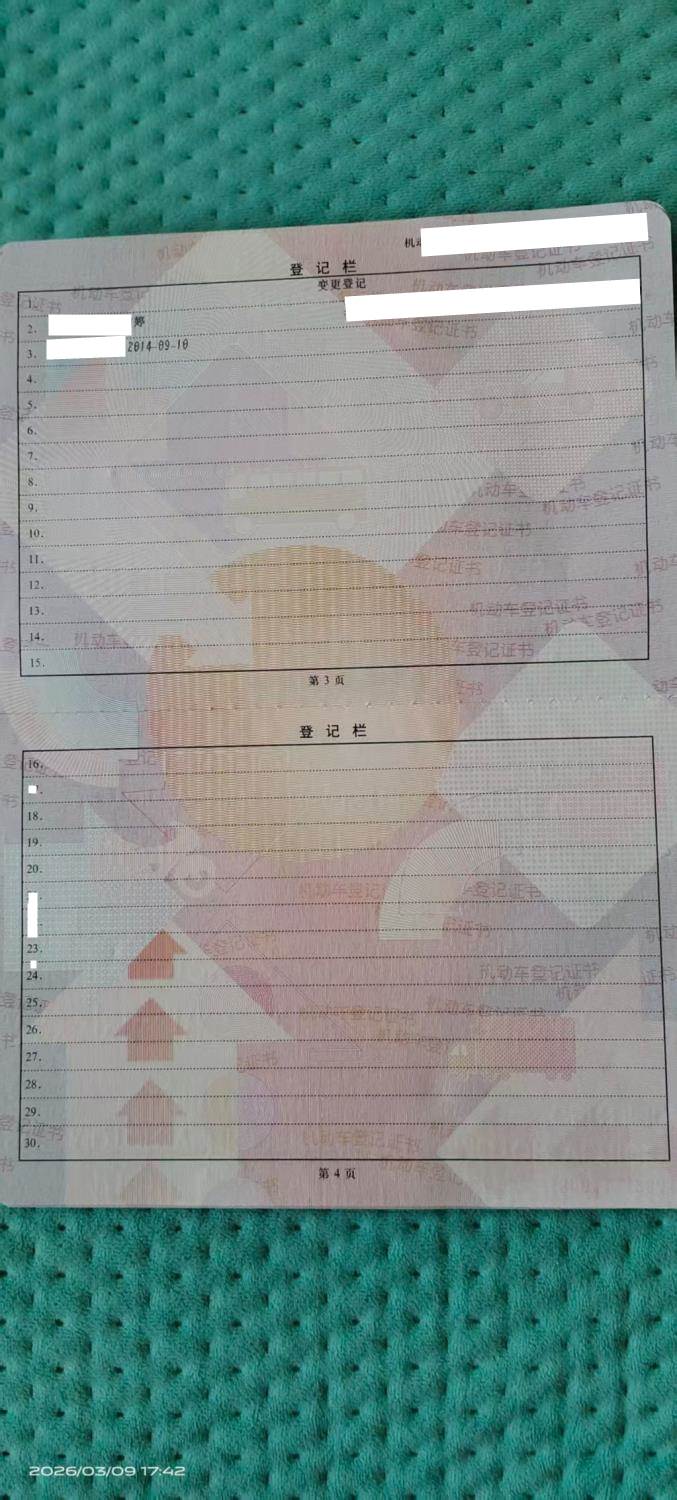 机动
登记栏
变更登记
1.
2. 婷
3. 2014-09-10
4.
5.
6.
7.
8.
9.
10.
11.
12.
13.
14.
15.
第 3 页
登记栏
16.
18.
19.
20.
23.
24.
25.
26.
27.
28.
29.
30.
第 4 页
机动车登记证书
2026/03/09 17:42